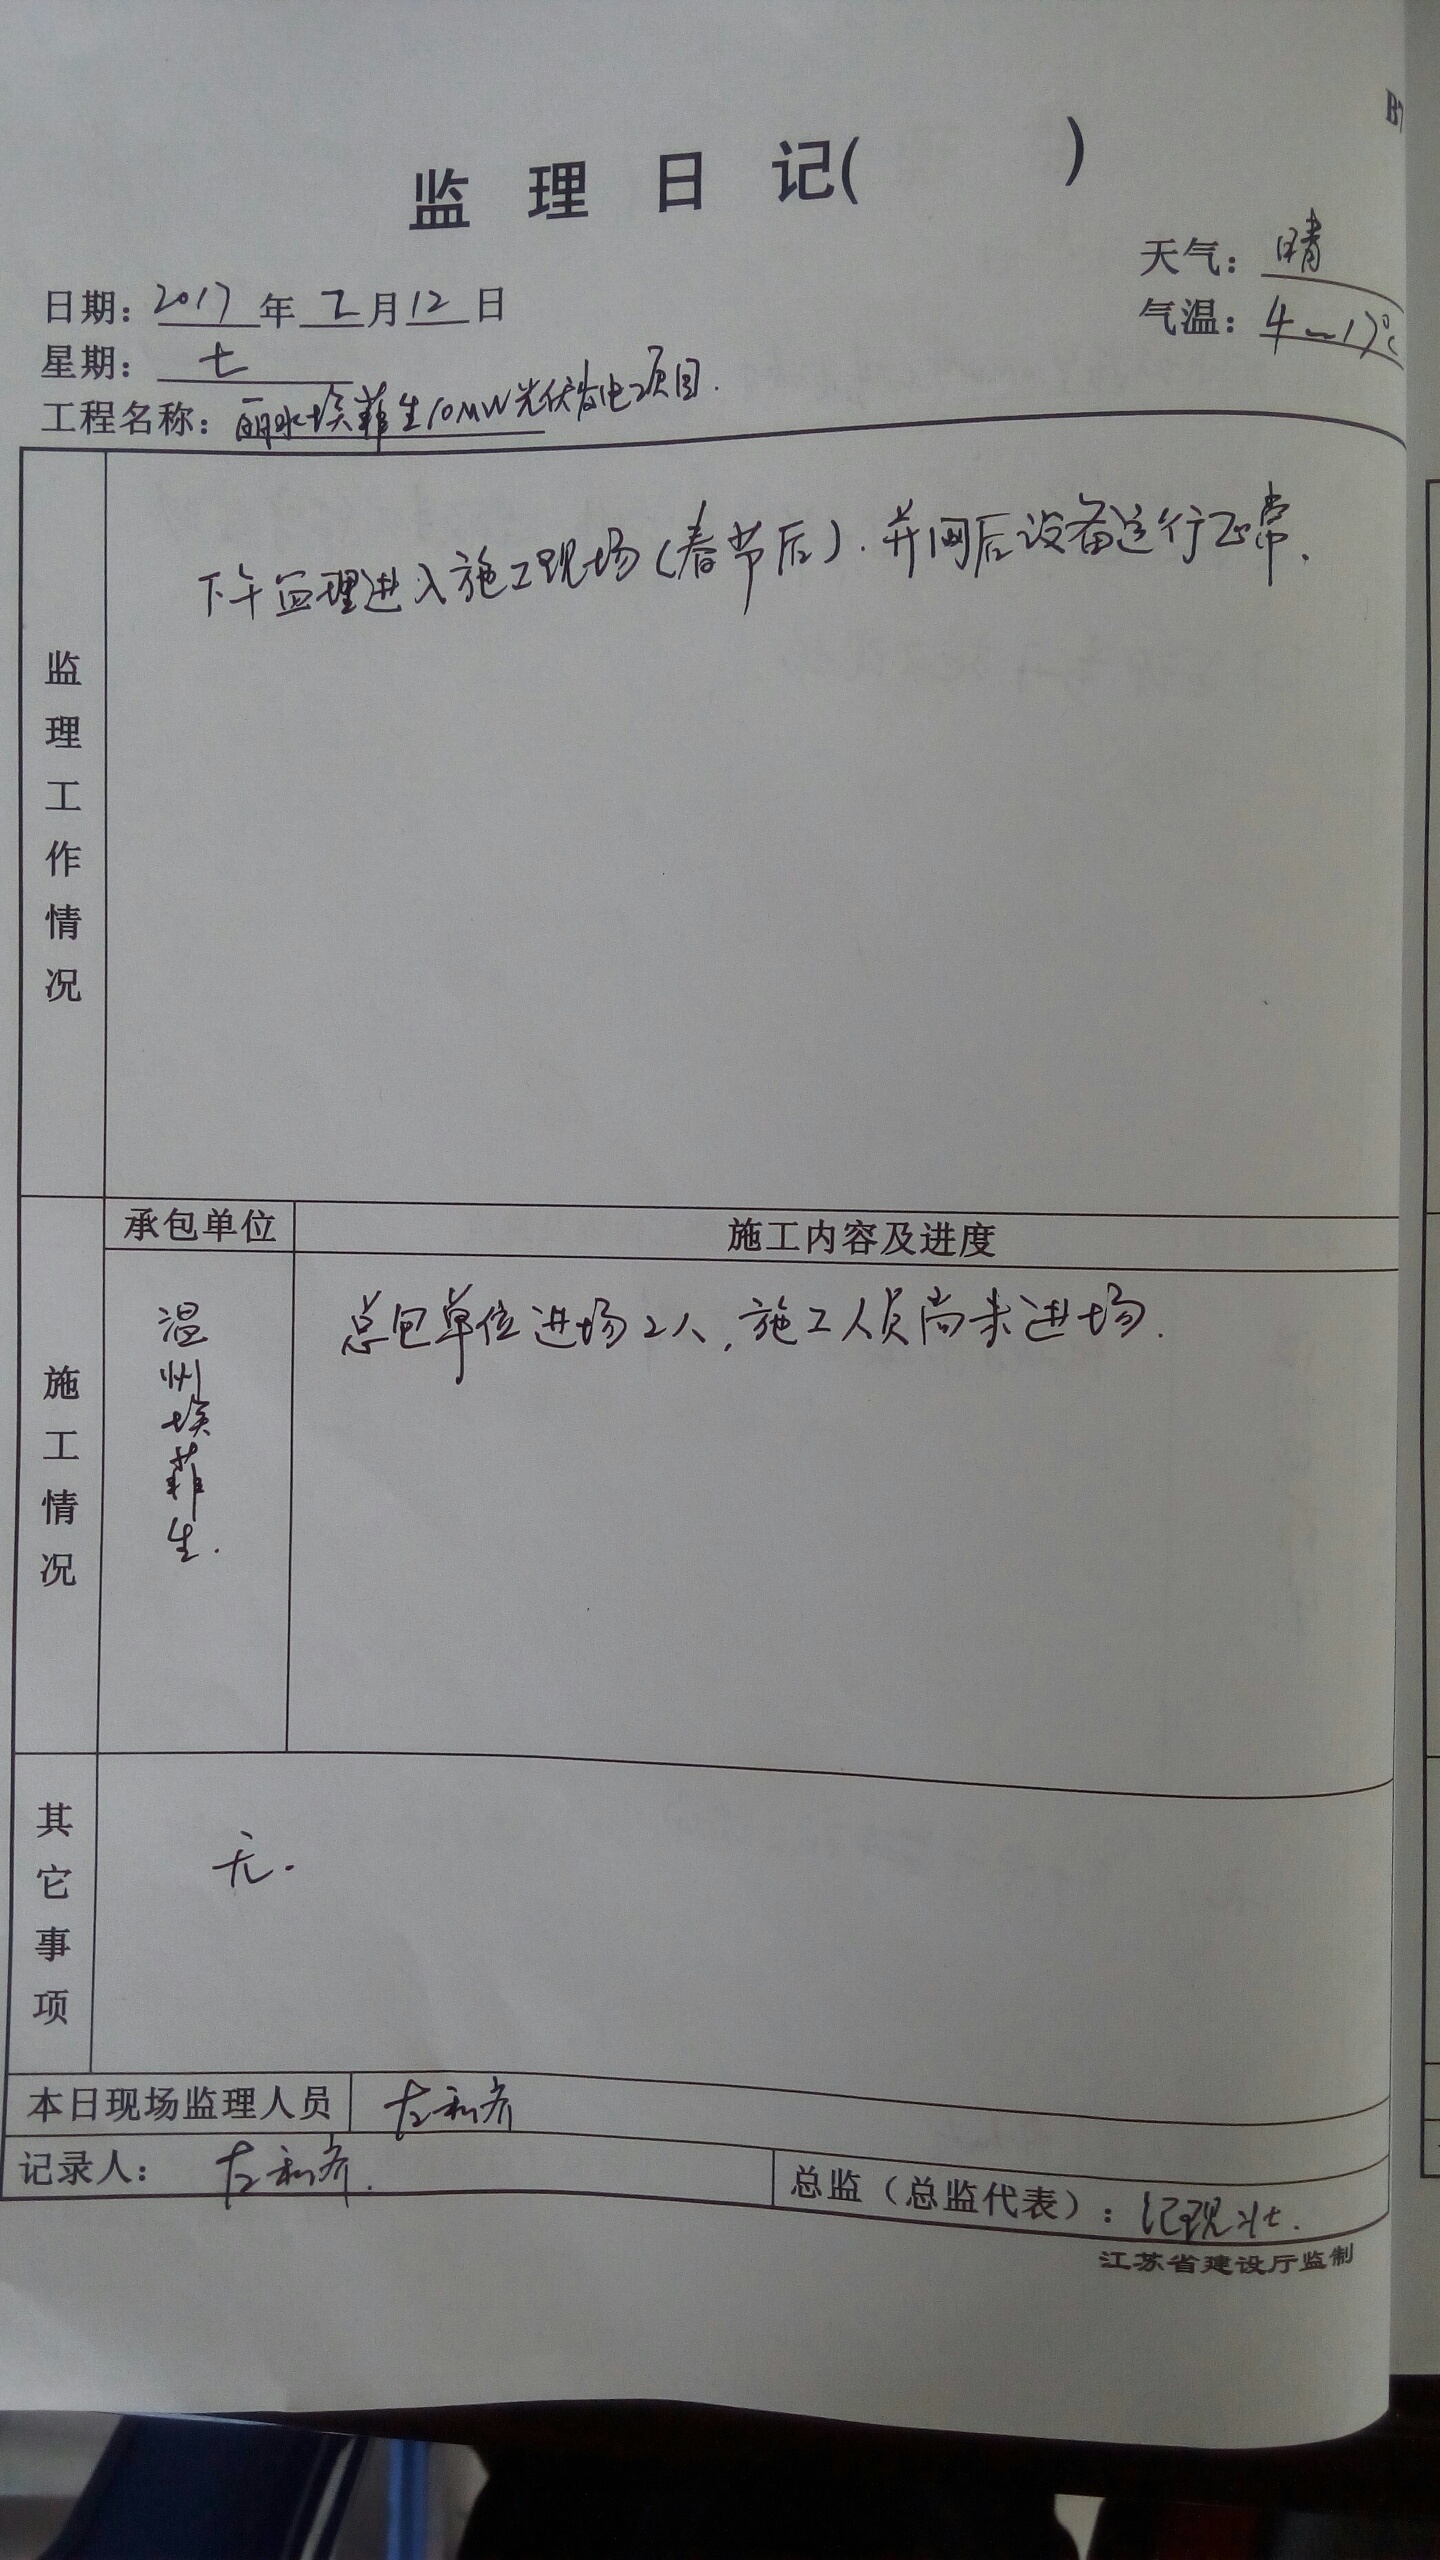 监 理 日 记( )
天气：晴
日期：2017年2月12日
气温：4—17℃
星期：七
工程名称：丽水埃菲生10MW光伏发电项目.
监理工作情况
下午监理进入施工现场(春节后).并网后设备运行正常.
施工情况
承包单位
施工内容及进度
温州埃菲生.
总包单位进场2人,施工人员尚未进场.
其它事项
无.
本日现场监理人员
记录人：
总监（总监代表）：
江苏省建设厅监制